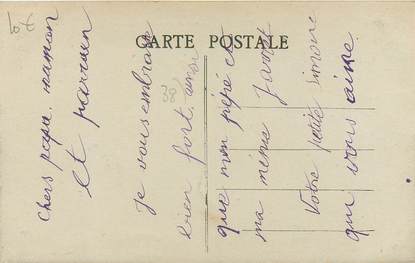 CARTE POSTALE
Chers papa, maman
et parrain
Je vous embrasse
bien fort ainsi
que mon pépé et
ma mémé
Votre petite Simone
qui vous aime